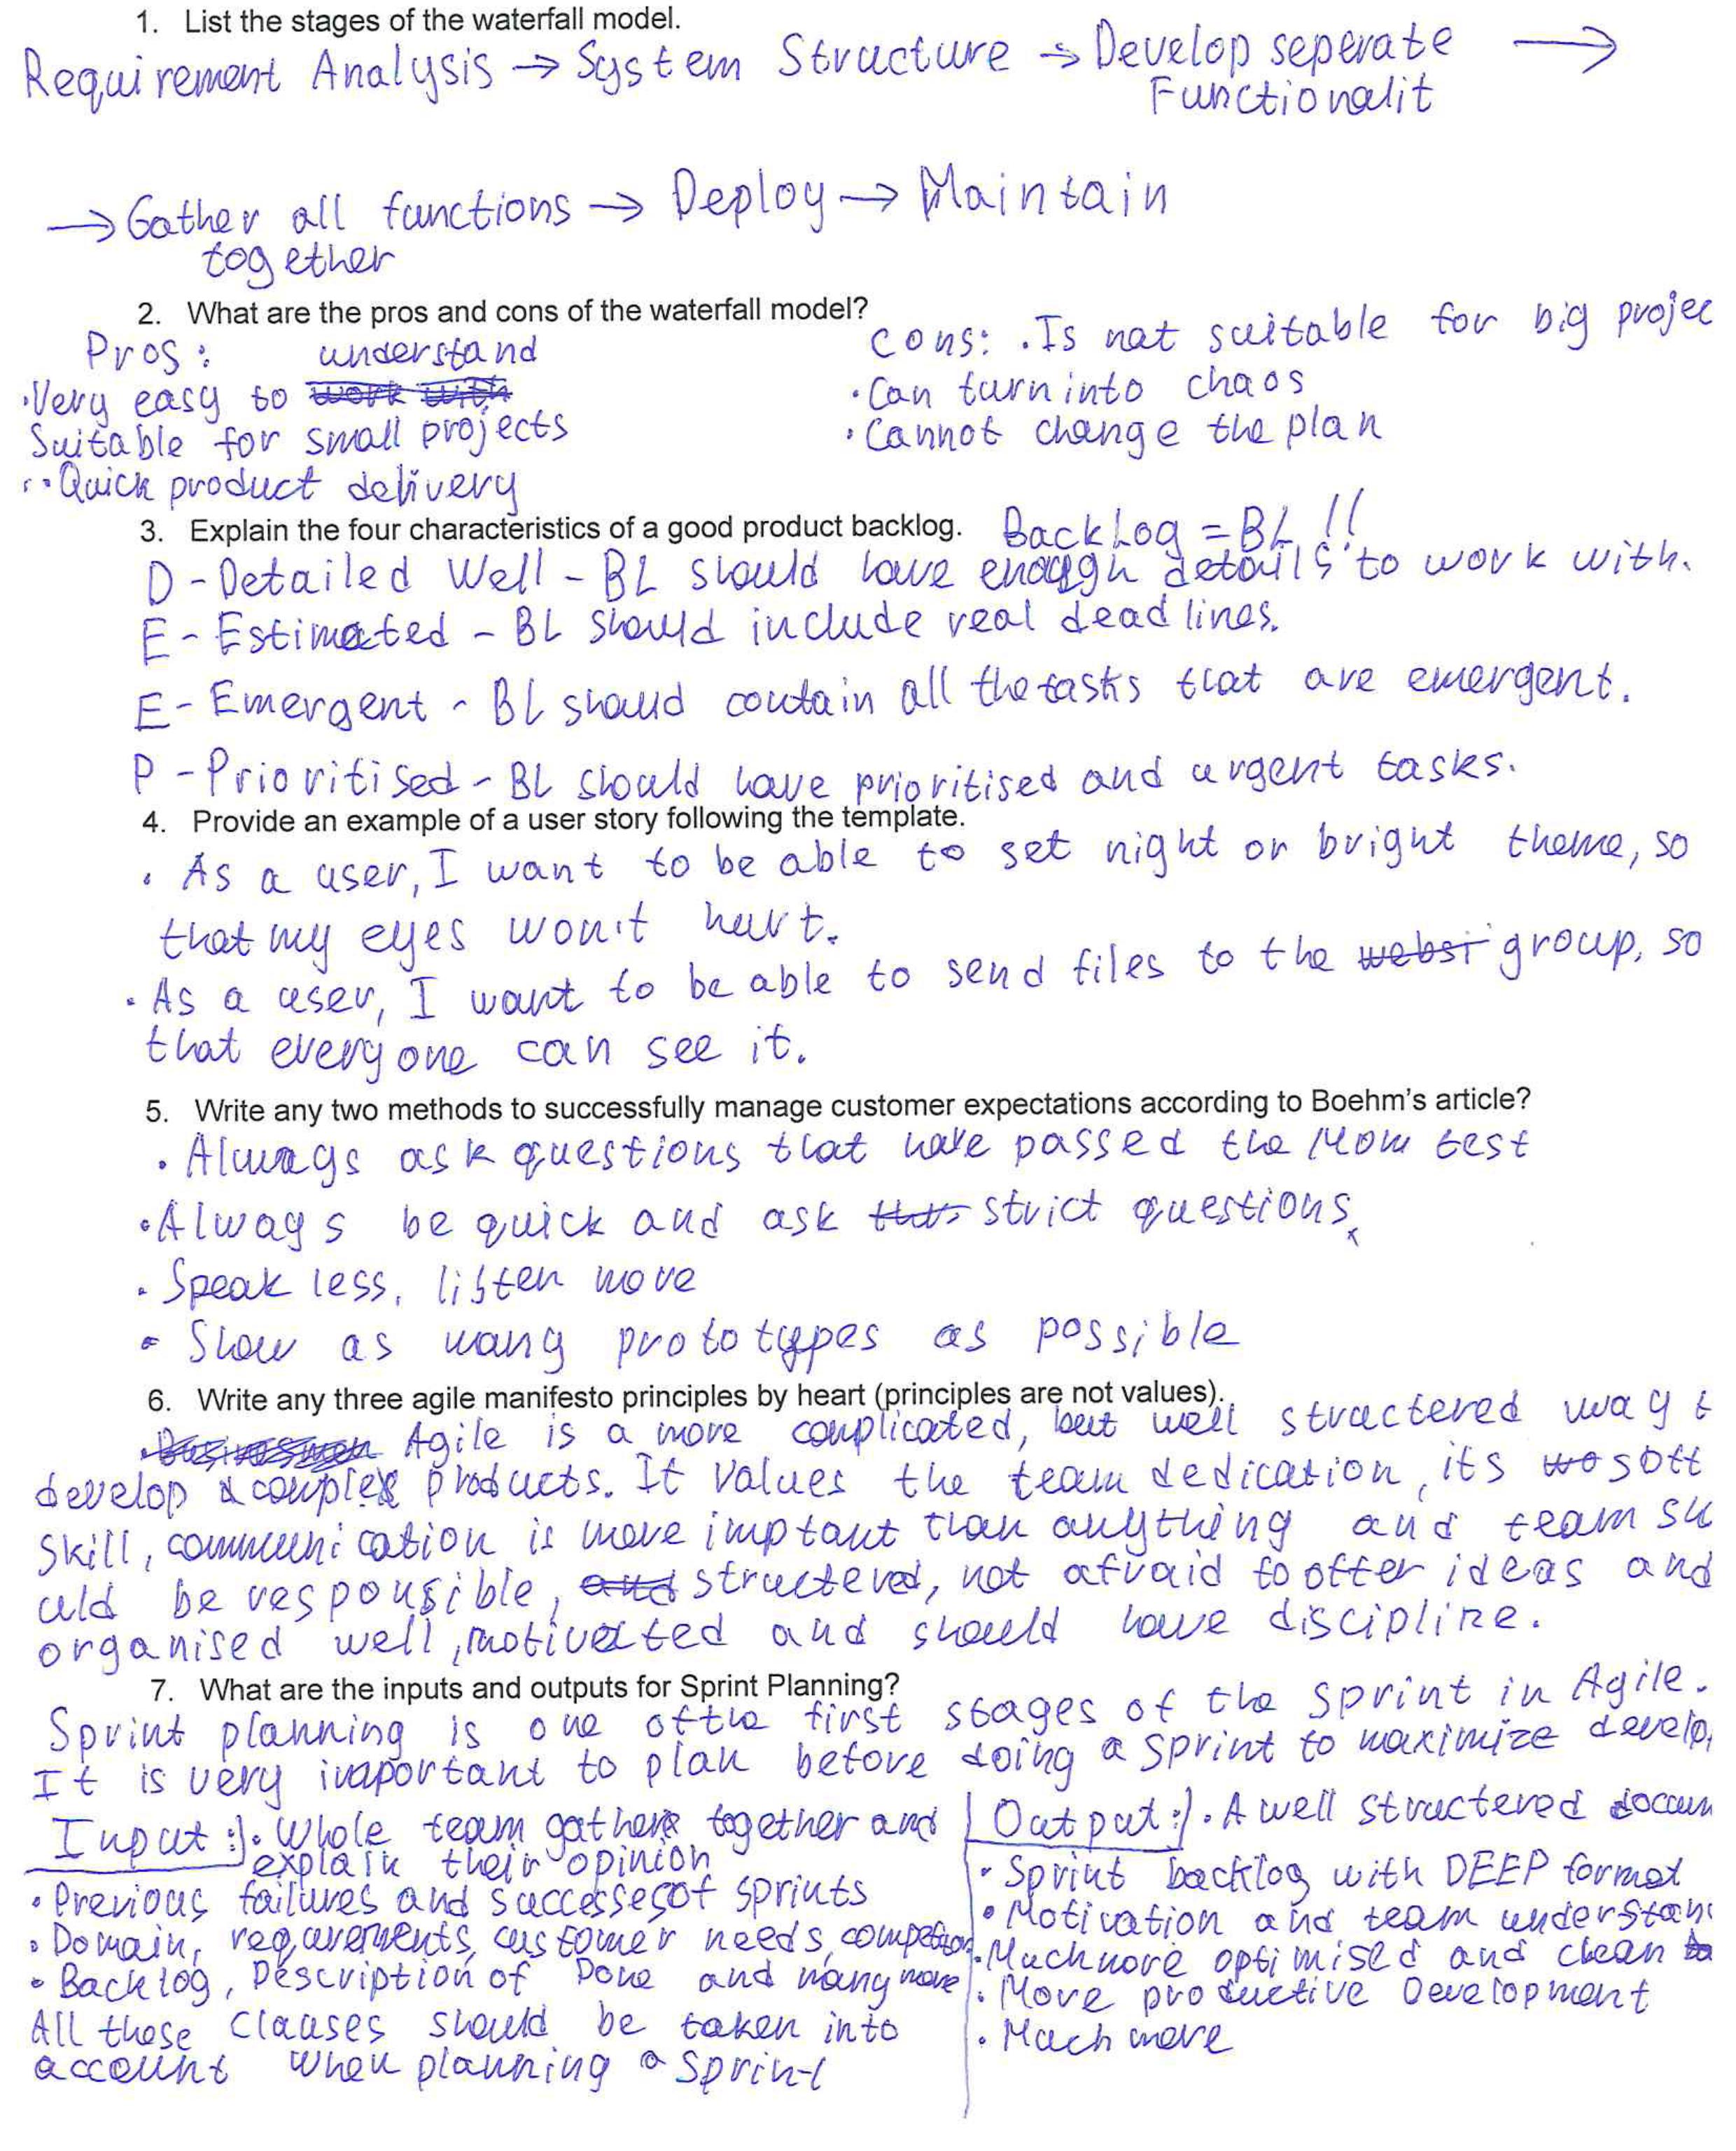 1. List the stages of the waterfall model.
Requirement Analysis → System Structure → Develop seperate →
Functionalit
→ Gather all functions → Deploy → Maintain
together
2. What are the pros and cons of the waterfall model?
Pros: understand
• Very easy to work with
Suitable for small projects
• Quick product delivery
Cons: • Is not suitable for big projec
• Can turn into chaos
• Cannot change the plan
3. Explain the four characteristics of a good product backlog. BackLog = BL !!
D - Detailed Well - BL should have enough details to work with.
E - Estimated - BL should include real deadlines.
E - Emergent - BL should contain all the tasks that are emergent.
P - Prioritised - BL should have prioritised and urgent tasks.
4. Provide an example of a user story following the template.
• As a user, I want to be able to set night or bright theme, so
that my eyes won't hurt.
• As a user, I want to be able to send files to the websi group, so
that everyone can see it.
5. Write any two methods to successfully manage customer expectations according to Boehm's article?
• Always ask questions that have passed the Mom test
• Always be quick and ask strict questions
• Speak less, listen more
• Show as many prototypes as possible
6. Write any three agile manifesto principles by heart (principles are not values).
Agile is a more complicated, but well structered way t
develop complex products. It values the team dedication, its soft
skill, communication is more imptant than anything and team sh
uld be responsible, and structered, not afraid to offer ideas and
organised well, motivated and should have discipline.
7. What are the inputs and outputs for Sprint Planning?
Sprint planning is one of the first stages of the sprint in Agile.
It is very important to plan before doing a sprint to maximize develop
Input:). Whole team gathers together and
explain their opinion
• Previous failures and successes of sprints
• Domain, requirements, customer needs, competition
• Backlog, Description of Done and many more
All these clauses should be taken into
account when planning a Sprint
Output:). A well structered docum
• Sprint backlog with DEEP format
• Motivation and team understan
• Much more optimised and clean
• More productive Development
• Much more